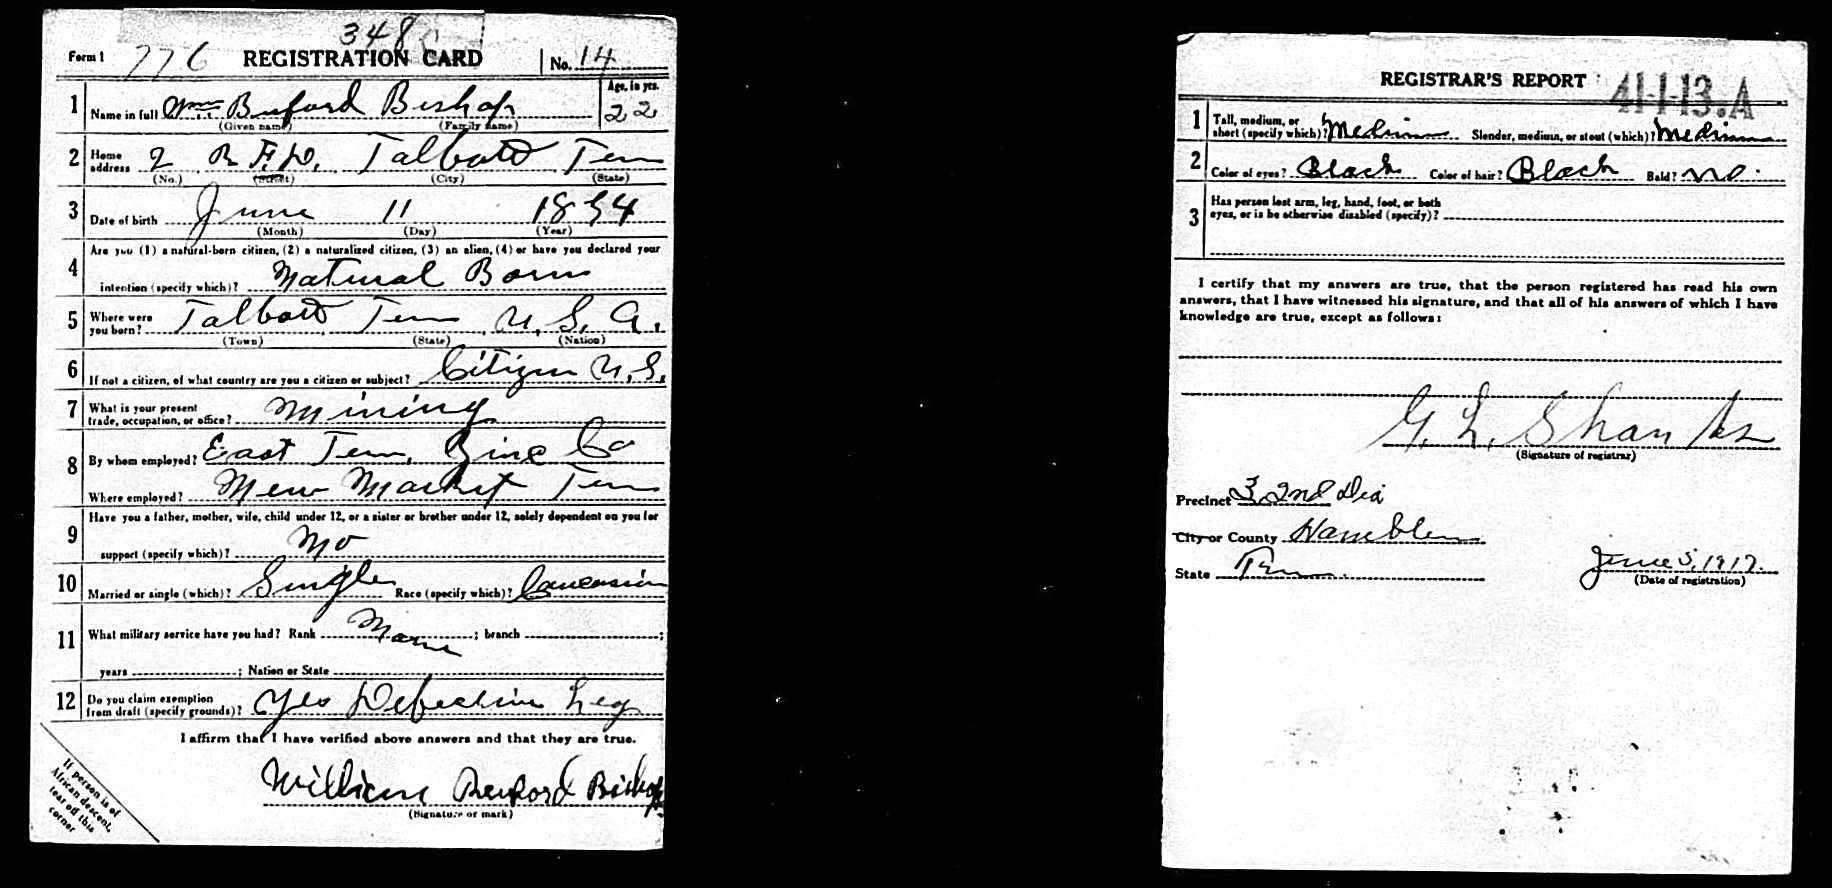 348
Form 1 776 REGISTRATION CARD No. 14
1 Name in full Wm. Buford Bishop Age, in yrs. 22
(Given name) (Family name)
2 Home address 2 R.F.D. Talbott Tenn
(No.) (Street) (City) (State)
3 Date of birth June 11 1894
(Month) (Day) (Year)
4 Are you (1) a natural-born citizen, (2) a naturalized citizen, (3) an alien, (4) or have you declared your
intention (specify which)? Natural Born
5 Where were you born? Talbott Tenn U.S.A.
(Town) (State) (Nation)
6 If not a citizen, of what country are you a citizen or subject? Citizen U.S.
7 What is your present trade, occupation, or office? Mining
8 By whom employed? East Tenn. Zinc Co
Where employed? New Market Tenn
9 Have you a father, mother, wife, child under 12, or a sister or brother under 12, solely dependent on you for
support (specify which)? No
10 Married or single (which)? Single Race (specify which)? Caucasian
11 What military service have you had? Rank None ; branch ;
years ; Nation or State
12 Do you claim exemption from draft (specify grounds)? Yes Defective Leg
I affirm that I have verified above answers and that they are true.
William Buford Bishop
(Signature or mark)
If person is of
African descent,
tear off this
corner
REGISTRAR'S REPORT 41-1-13.A
1 Tall, medium, or short (specify which)? Medium Slender, medium, or stout (which)? Medium
2 Color of eyes? Black Color of hair? Black Bald? No.
3 Has person lost arm, leg, hand, foot, or both
eyes, or is he otherwise disabled (specify)?
I certify that my answers are true, that the person registered has read his own
answers, that I have witnessed his signature, and that all of his answers of which I have
knowledge are true, except as follows:
G. L. Shanks
(Signature of registrar)
Precinct 3 2nd Dis
City or County Hamblen
State Tenn. June 5, 1917.
(Date of registration)